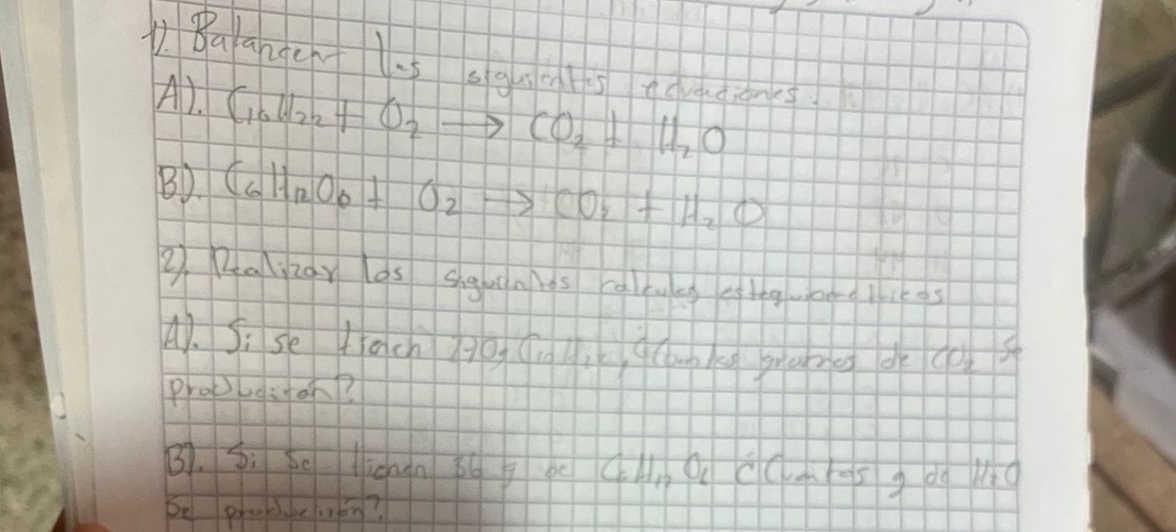 1). Balancear las siguientes ecuaciones.
A). C10H22 + O2 → CO2 + H2O
B). C6H12O6 + O2 → CO2 + H2O
2). Realizar los siguientes calculos estequiometricos
A). Si se tienen C10H22, ¿Cuantos gramos de CO2 se
produciron?
B). Si se tienen 36 g de C6H12O6 ¿Cuantos g de H2O
se produciron?